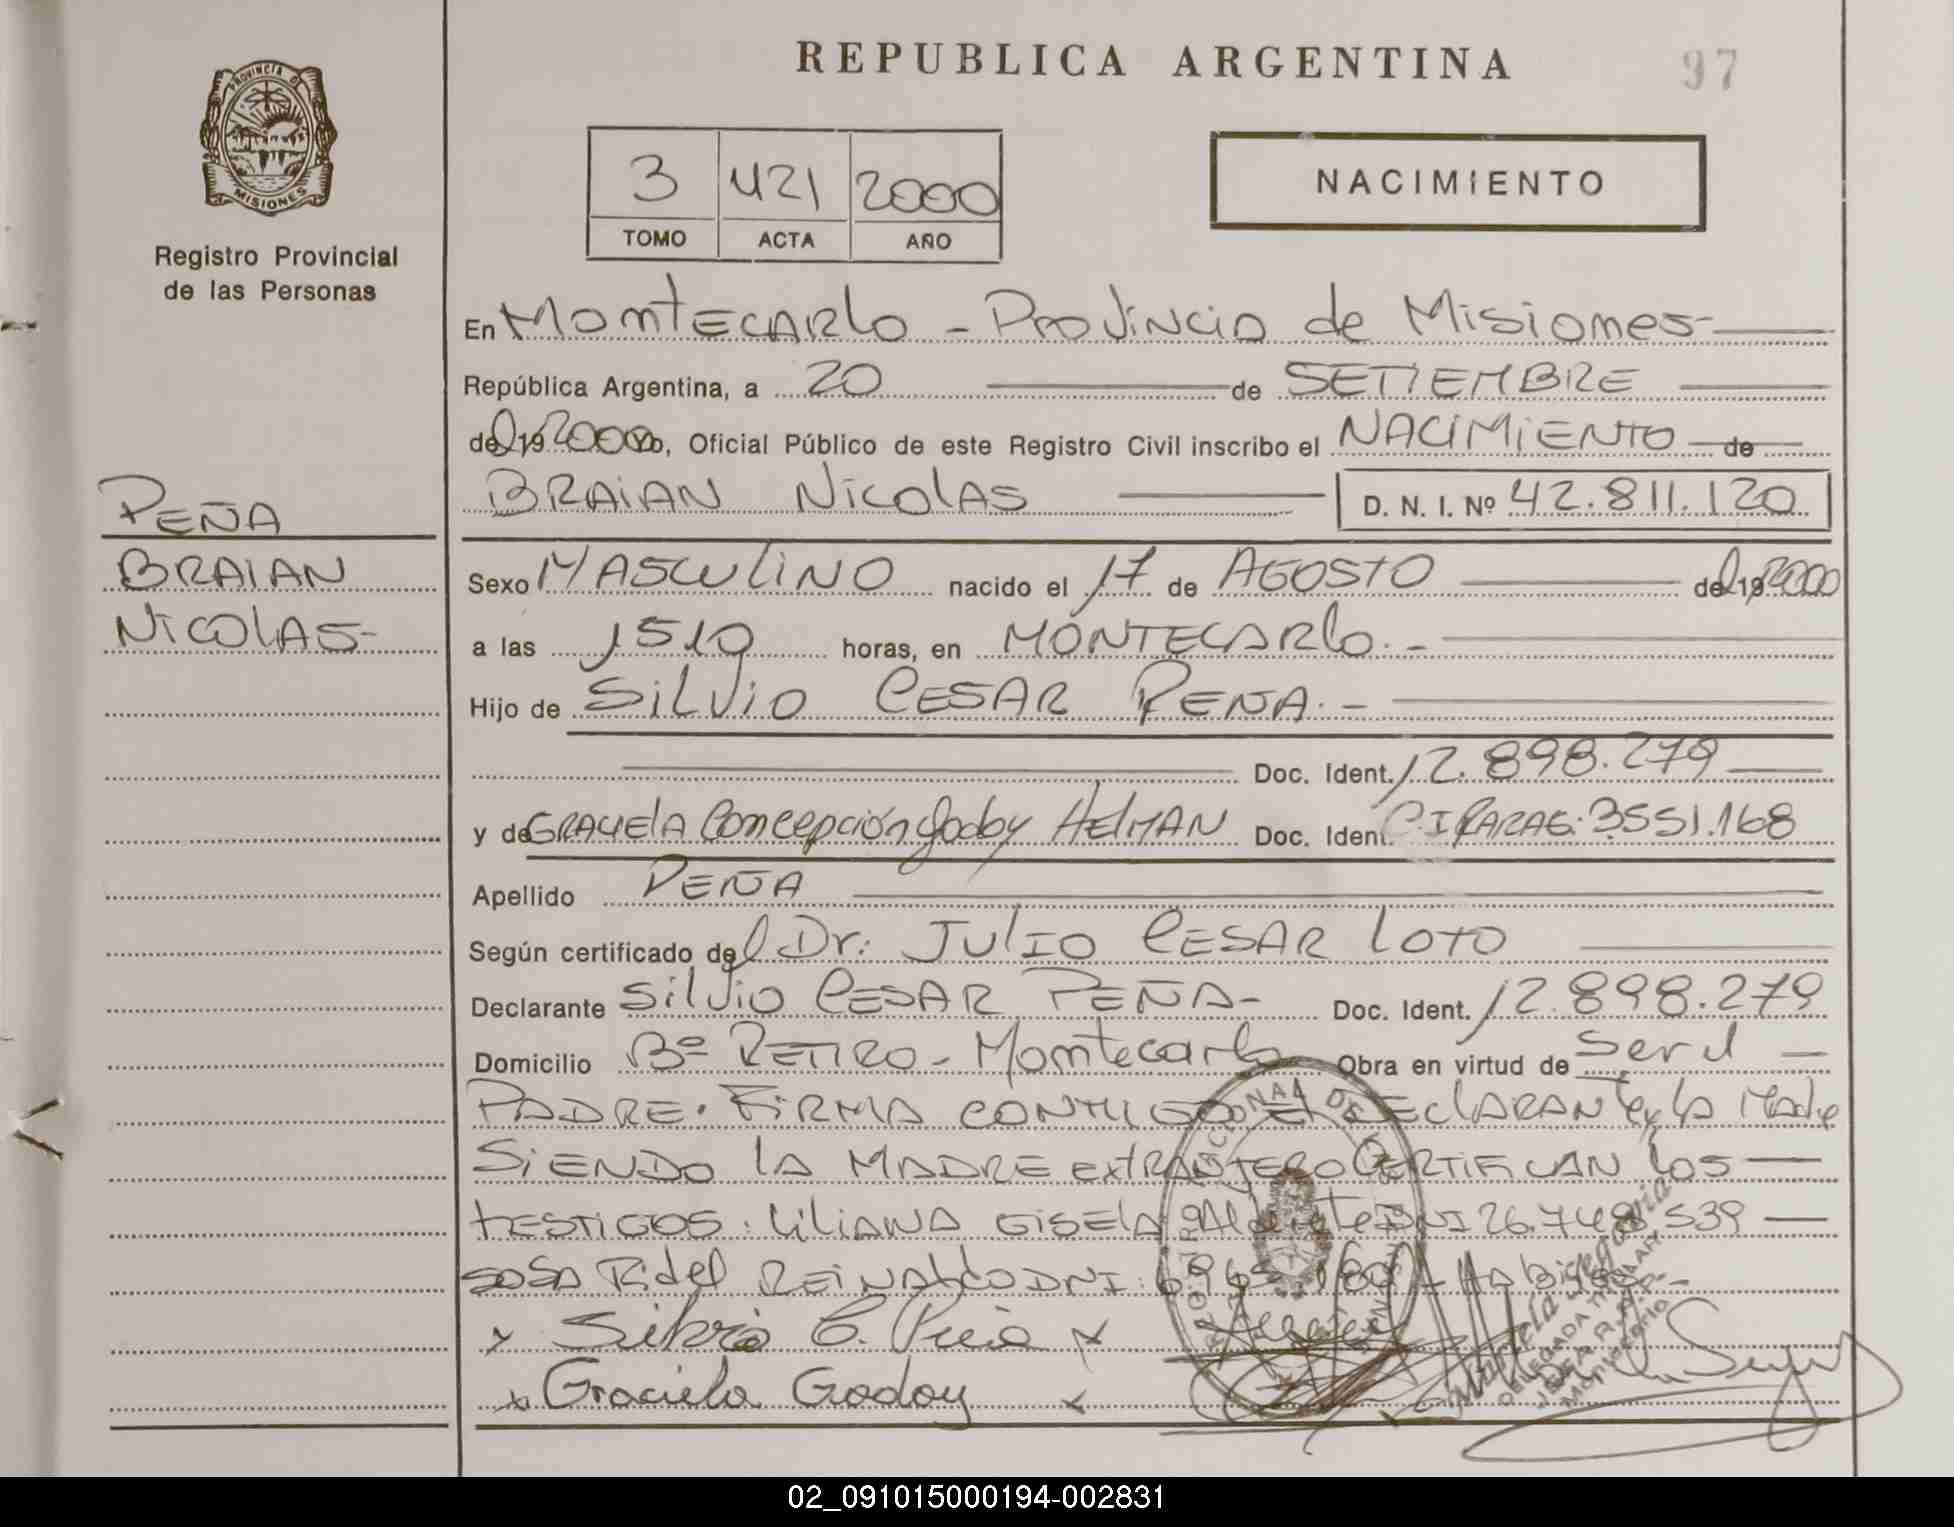 REPUBLICA ARGENTINA
97
PROVINCIA DE
MISIONES
Registro Provincial
de las Personas
3 421 2000
TOMO ACTA AÑO
NACIMIENTO
En MONTECARLO - Provincia de Misiones
República Argentina, a 20 de SETIEMBRE
del 19 2000 Yo, Oficial Público de este Registro Civil inscribo el NACIMIENTO de
BRAIAN NicolAS D. N. I. Nº 42.811.120
PEÑA
BRAIAN
NICOLAS-
Sexo MASCULINO nacido el 17 de AGOSTO del 19 2000
a las 1510 horas, en MONTECARLO.-
Hijo de SILVIO CESAR PEÑA.-
Doc. Ident. 12.898.279
y de GRACIELA Concepción Godoy HELMAN Doc. Ident. C.I PARAG: 3551.168
Apellido PEÑA
Según certificado del Dr: JULIO CESAR LOTO
Declarante Silvio CESAR PEÑA- Doc. Ident. 12.898.279
Domicilio Bº RETIRO - Montecarlo Obra en virtud de Ser el
PADRE. FIRMA CONMIGO El DEClARANTE y la Madre
SIENDO LA MADRE extRANJERO CERTIFICAN los
tESTIGOS: LILIANA GISELA DNI 26.748.539
SOSA Fidel REINALDO DNI:
Silvio C. Peña
Graciela Godoy
DELEGADA TITULAR
02_091015000194-002831